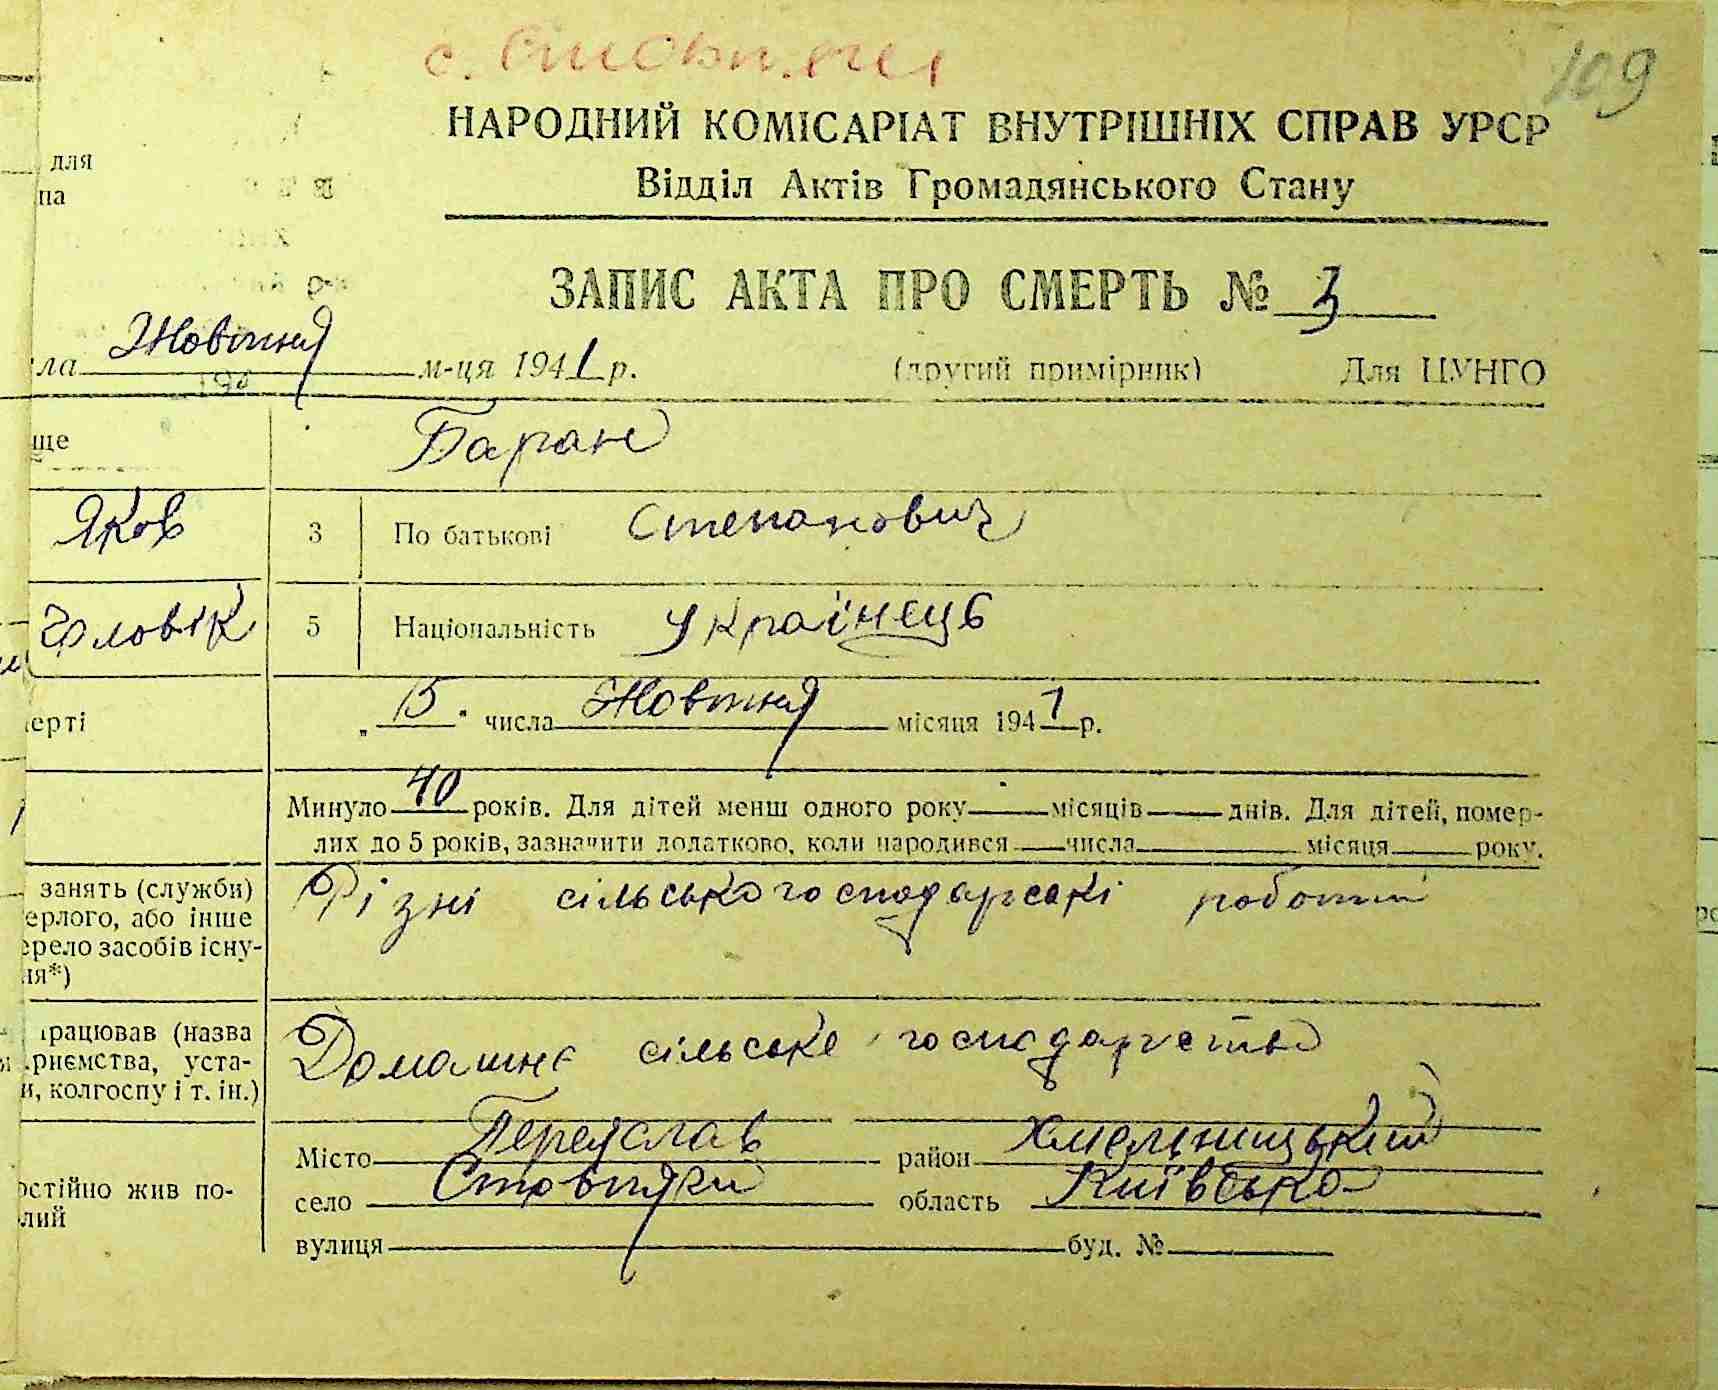 с. Стовп.яги
109
НАРОДНИЙ КОМІСАРІАТ ВНУТРІШНІХ СПРАВ УРСР
Відділ Актів Громадянського Стану
для
па
ЗАПИС АКТА ПРО СМЕРТЬ № 3
ла Жовтня м-ця 1941 р. (другий примірник) Для ЦУНГО
194
ще Баран
Яков 3 По батькові Степанович
Чоловік 5 Національність Українець
ерті „15" числа Жовтня місяця 1941 р.
Минуло 40 років. Для дітей менш одного року місяців днів. Для дітей, помер-
лих до 5 років, зазначити додатково, коли народився числа місяця року.
занять (служби)
ерлого, або інше
рело засобів існу-
ня*)
Різні сільськогосподарські роботи
рацював (назва
риємства, уста-
и, колгоспу і т. ін.)
Домашнє сільське господарство
Місто Переяслав район Хмельницький
остійно жив по-
лий
село Стовпяги область Київська
вулиця буд. №